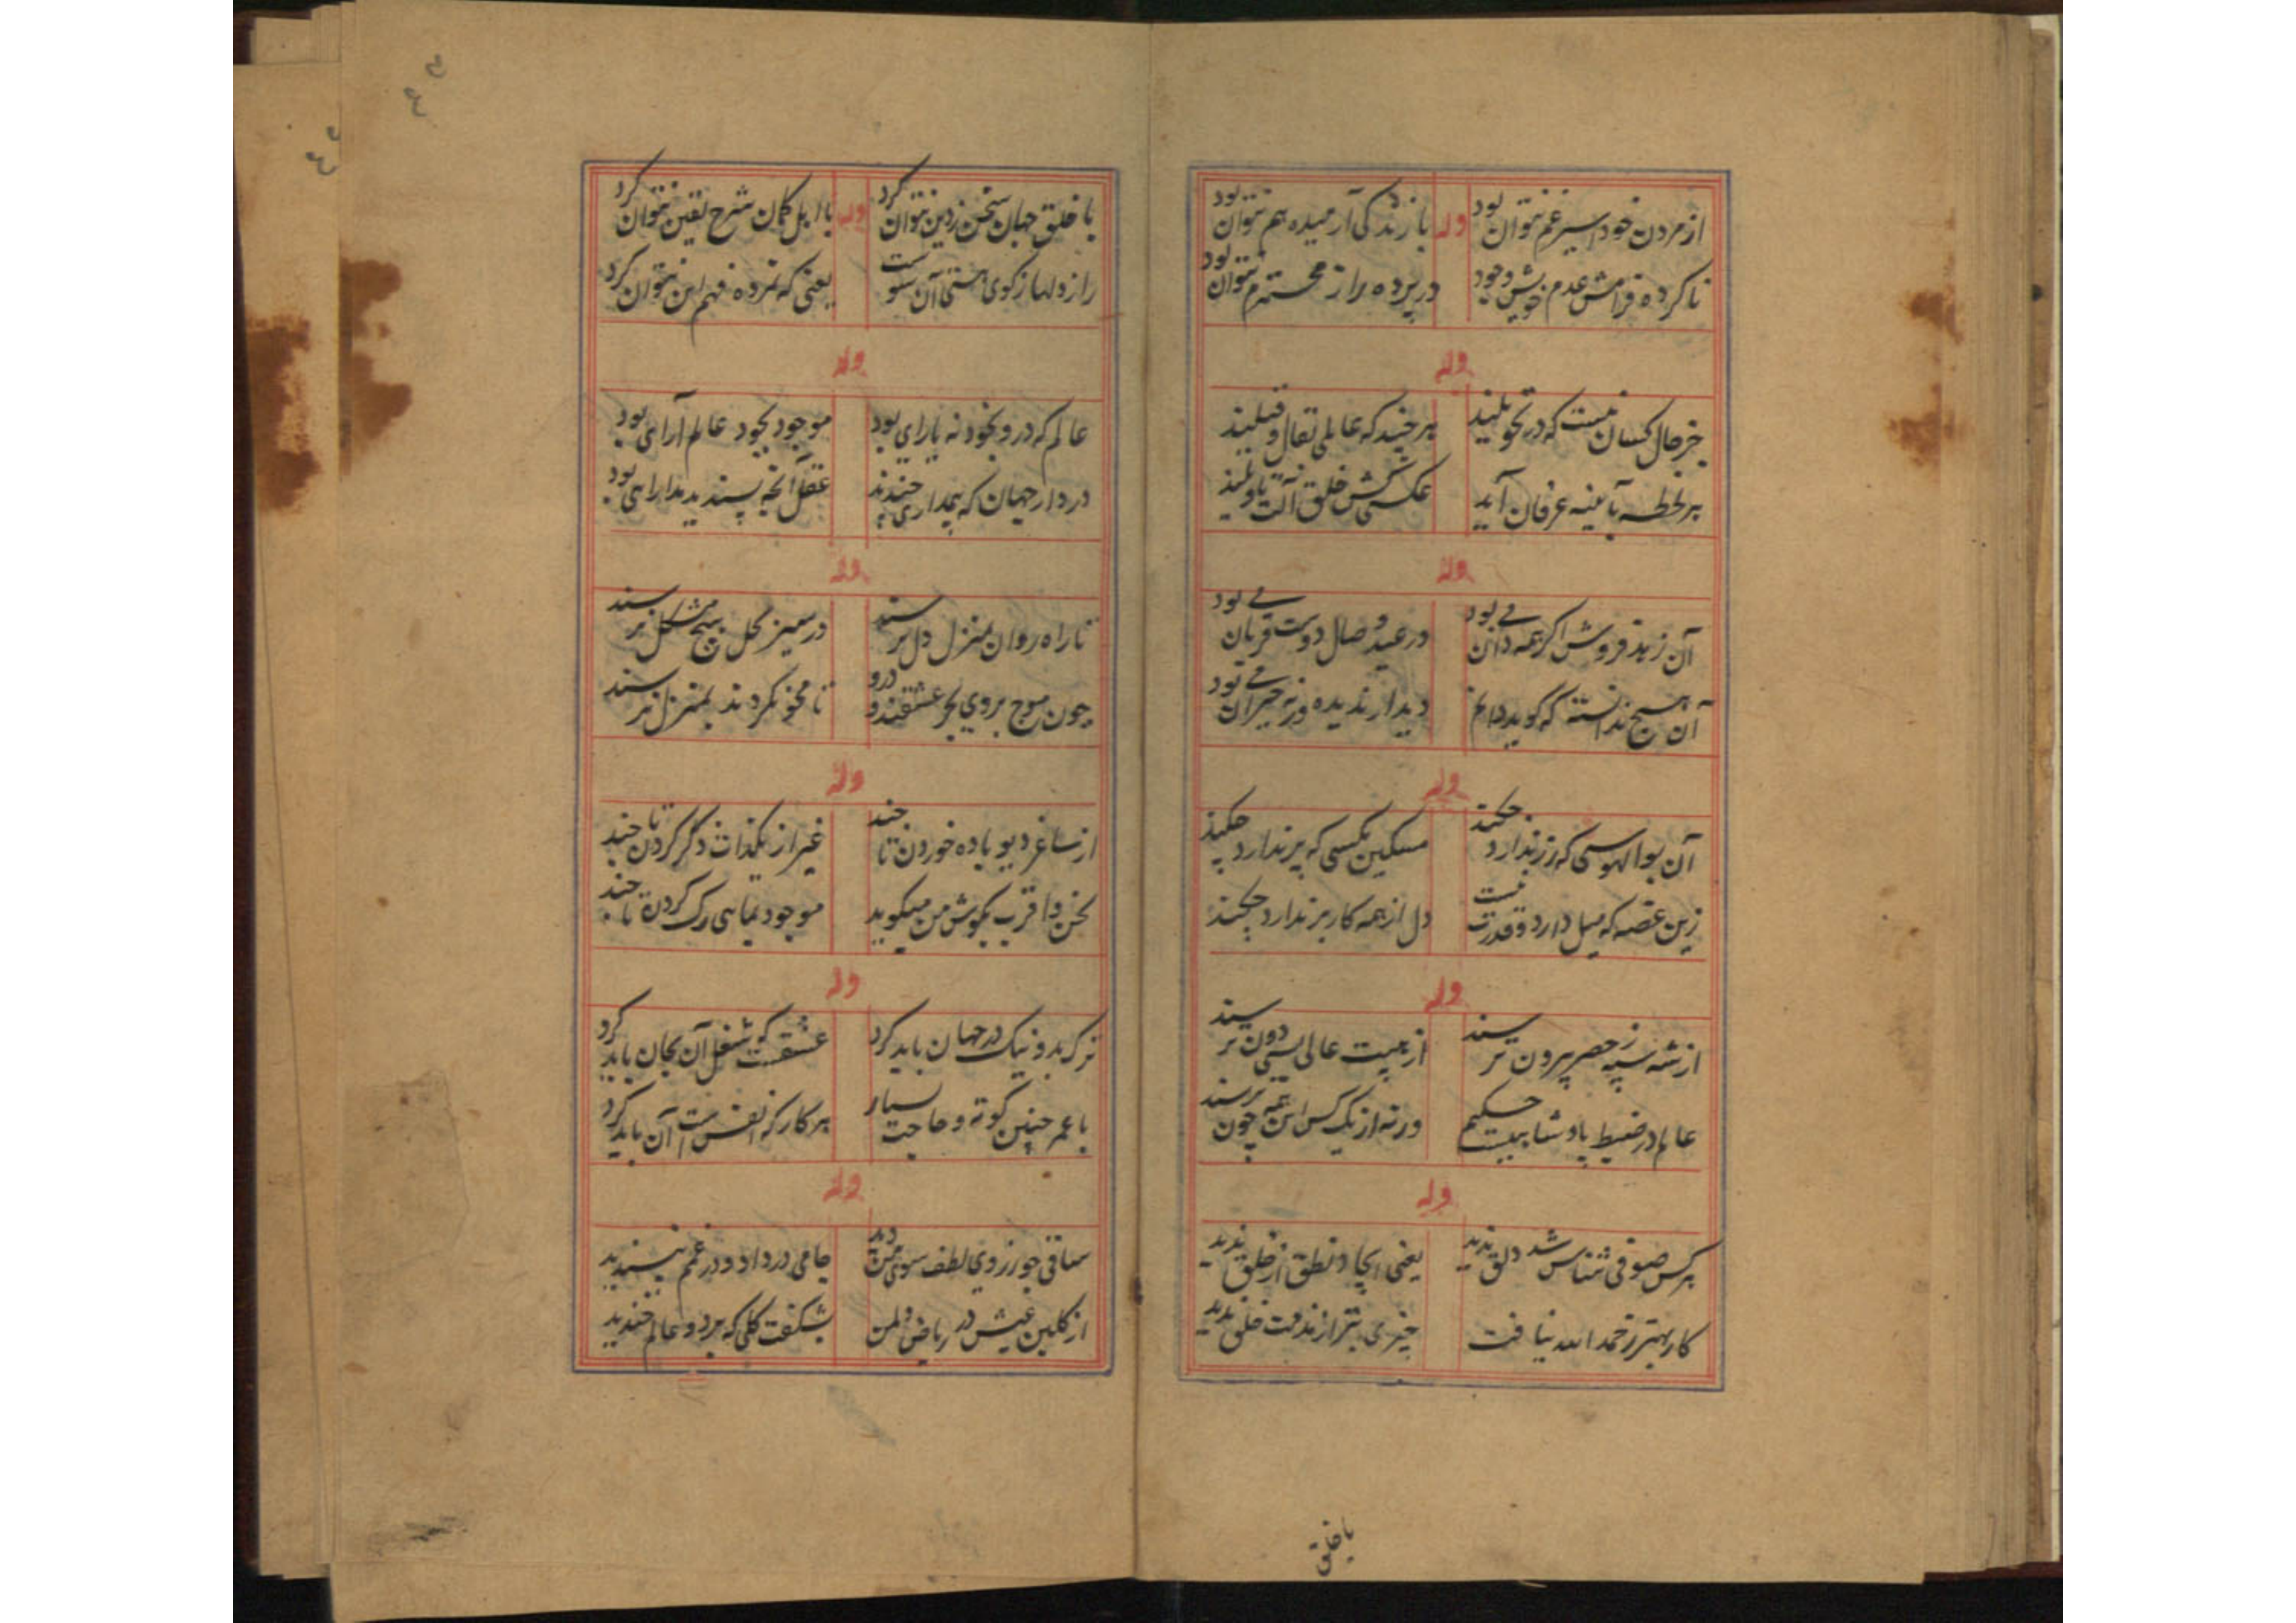 از مردن خود اسیر غم نتوان بود وله با زندگی آرمیده هم نتوان بود
ناکرده فرامش عدم خویش وجود در پرده راز محترم نتوان بود
وله
جز حال کسان نیست که در تحویلند هر چند که عالمی بقال و قیلند
هر لحظه بآئینه عرفان آید عکسی کش خلق آلت تاویلند
وله
آن زهد فروش اگر همه دان می بود در عید وصال دوست قربان می بود
آن هیچ ندانسته که گوید دانم دیدار ندیده ورنه حیران می بود
وله
آن بوالهوسی که زر ندارد چکند مسکین مگسی که پر ندارد چکند
زین غصه که میل دارد و قدرت نیست دل از همه کار بر ندارد چکند
وله
از شه سپه ز حصر بیرون ترسند از هیبت عالی بسی دون ترسند
عالم در ضبط پادشاهیست حکیم ورنه از یک کس این همه چون ترسند
وله
هر کس صوفی شناس شد دلق ندید یعنی ایجاد نطق از خلق ندید
کار بهتر ز حمد الله نیافت چیزی بتر از مذمت خلق ندید
با خلق
با خلق جهان سخن ز دین نتوان کرد وله با اهل گمان شرح یقین نتوان کرد
راز دلها ز کوی هستی آن سوست یعنی که نمرده فهم این نتوان کرد
وله
عالم که درو بخود نه یارای بود موجود بجود عالم آرای بود
در دار جهان که پیداری چندند عقل آنچه پسندید مدارای بود
وله
تا راه روان بمنزل دل برسند در سیر محل بیح مشکل برسند
چون موج بروی بحر عشقند و درو تا محو نگردند بمنزل نرسند
وله
از ساغر دیو باده خوردن تا چند غیر از یکذات ذکر کردن تا چند
نحن و اقرب بگوش من میگوید موجود نمای رک کردن تا چند
وله
ترک بد و نیک در جهان باید کرد عشقست که شغل آن بجان باید کرد
با عمر چنین کوته و حاجت بسیار هر کار که انفس است آن باید کرد
وله
ساقی چو ز روی لطف سوی من دید جامی در داد و در غمم نپسندید
از گلبن عیش در ریاض دلمن بشکفت گلی که بر دو عالم خندید